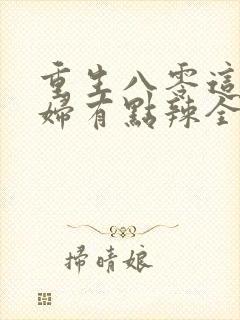 重生八零這
婦有點辣全
掃晴娘